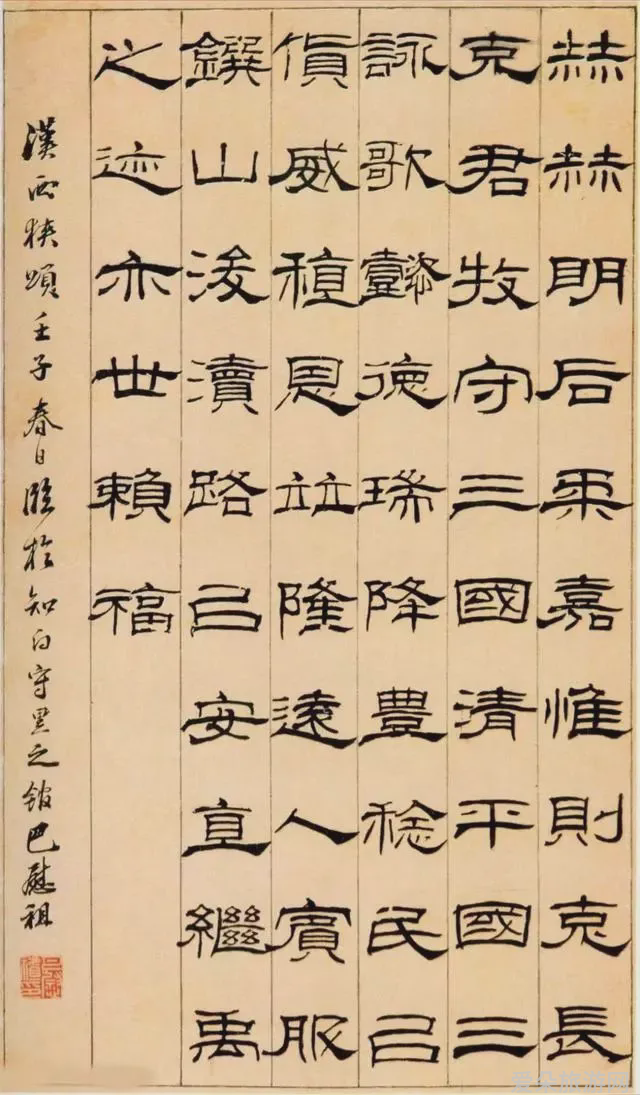 赫赫明后柔嘉惟則克長
克君牧守三國清平國三
詠歌懿德瑞降豐稔民㠯
貨威稙恩竝隆遠人賓服
鐉山浚瀆路㠯安直繼禹
之迹亦世賴福
漢西狹頌壬子春日臨於知白守黑之館巴慰祖
爱朵旅游网